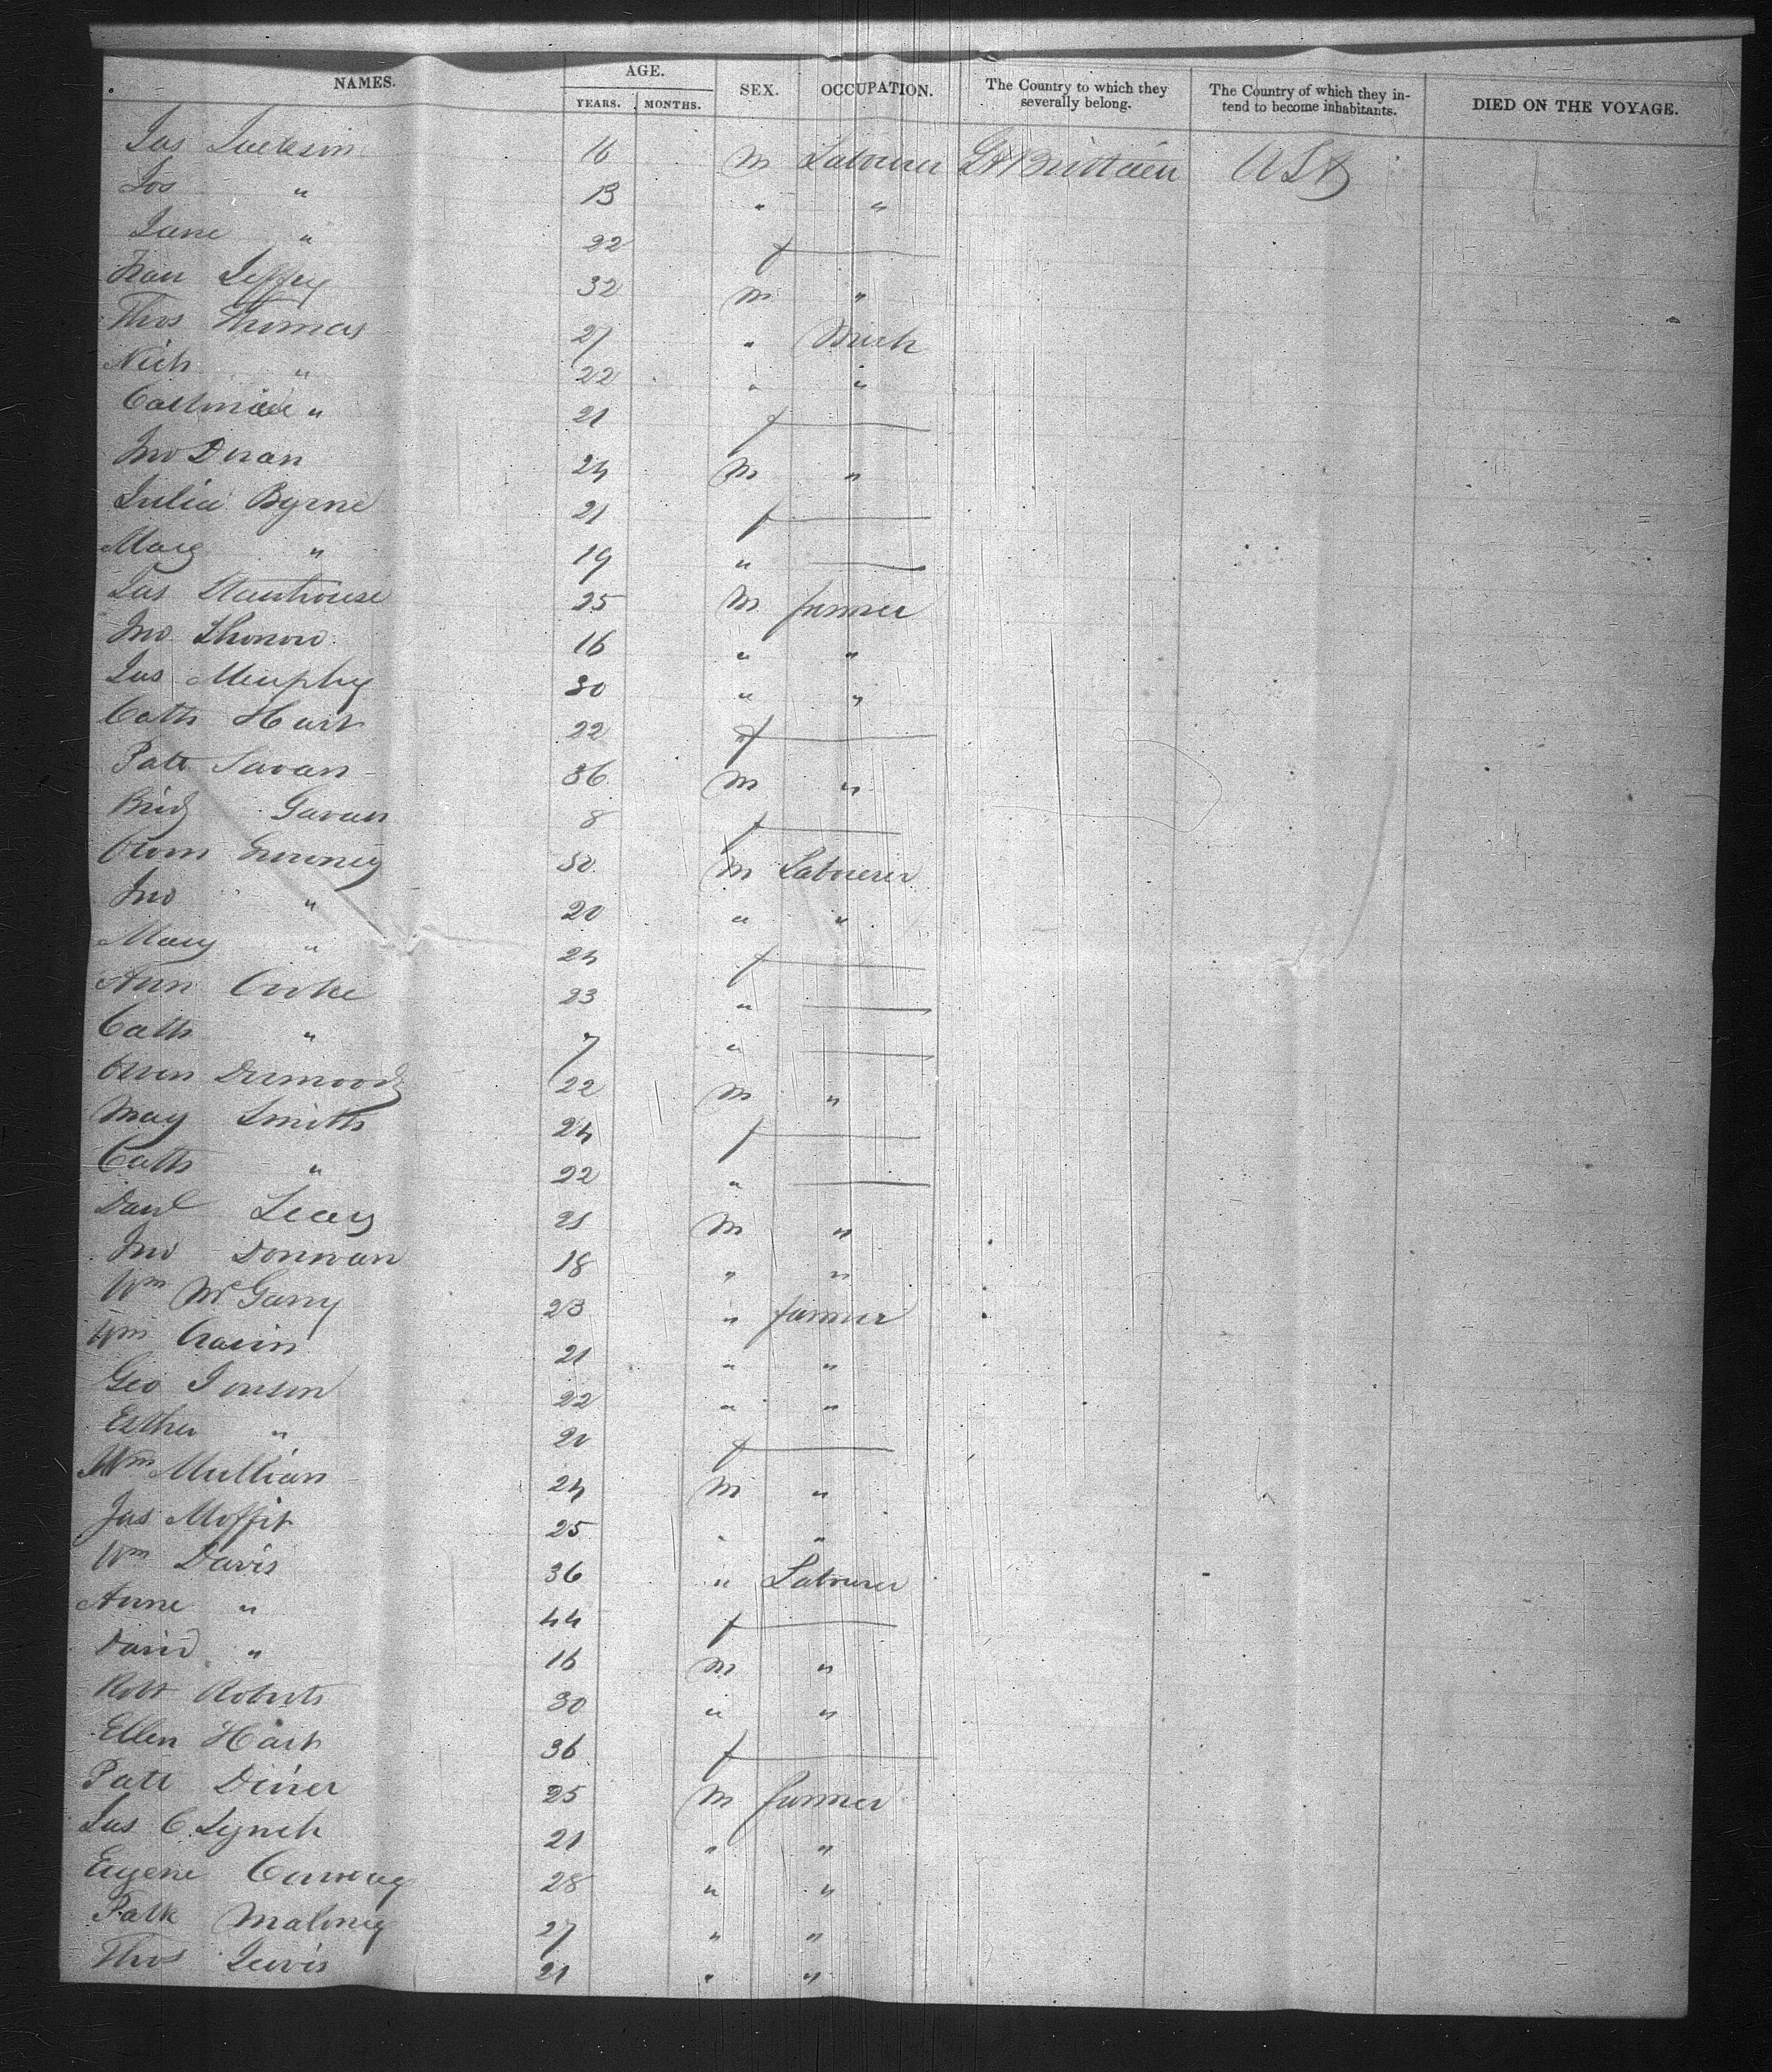 NAMES. AGE. YEARS. MONTHS. SEX. OCCUPATION. The Country to which they severally belong. The Country of which they intend to become inhabitants. DIED ON THE VOYAGE.
Jas Jackson 16 m Labourer Gt Brittain USA
Jos " 13 " "
Jane " 22 f
Fran Jeffry 32 m "
Thos Thomas 27 " Mich
Nich " 22 " "
" 21 f
Jno Duran 24 m "
Julia Byrne 21 f
Mary " 19 "
Jas Stanhouse 25 m farmer
Jno 16 " "
Jas Murphy 30 " "
Cath Hart 22 f
Patt Savan 36 m "
Brid Gavan 8 f
Owen 50 m Labourer
Jno " 20 " "
Mary " 24 f
Ann Cooke 23 "
Cath " 7 "
Owen Dermoody 22 m "
Mary Smith 24 f
Cath " 22 "
Danl Leary 21 m "
Jno Donovan 18 " "
Wm McGarry 23 " farmer
Wm Cravin 21 " "
Geo Jonson 22 " "
Esther " 20 f
Wm Mullian 24 m "
Jas Moffit 25 " "
Wm Davis 36 " Labourer
Anne " 44 f
David " 16 m "
Robt Roberts 30 " "
Ellen Hart 36 f
Patt Diner 25 m farmer
Jas C Lynch 21 " "
Eugene 28 " "
Patk Maloney 27 " "
Thos Lewis 21 " "